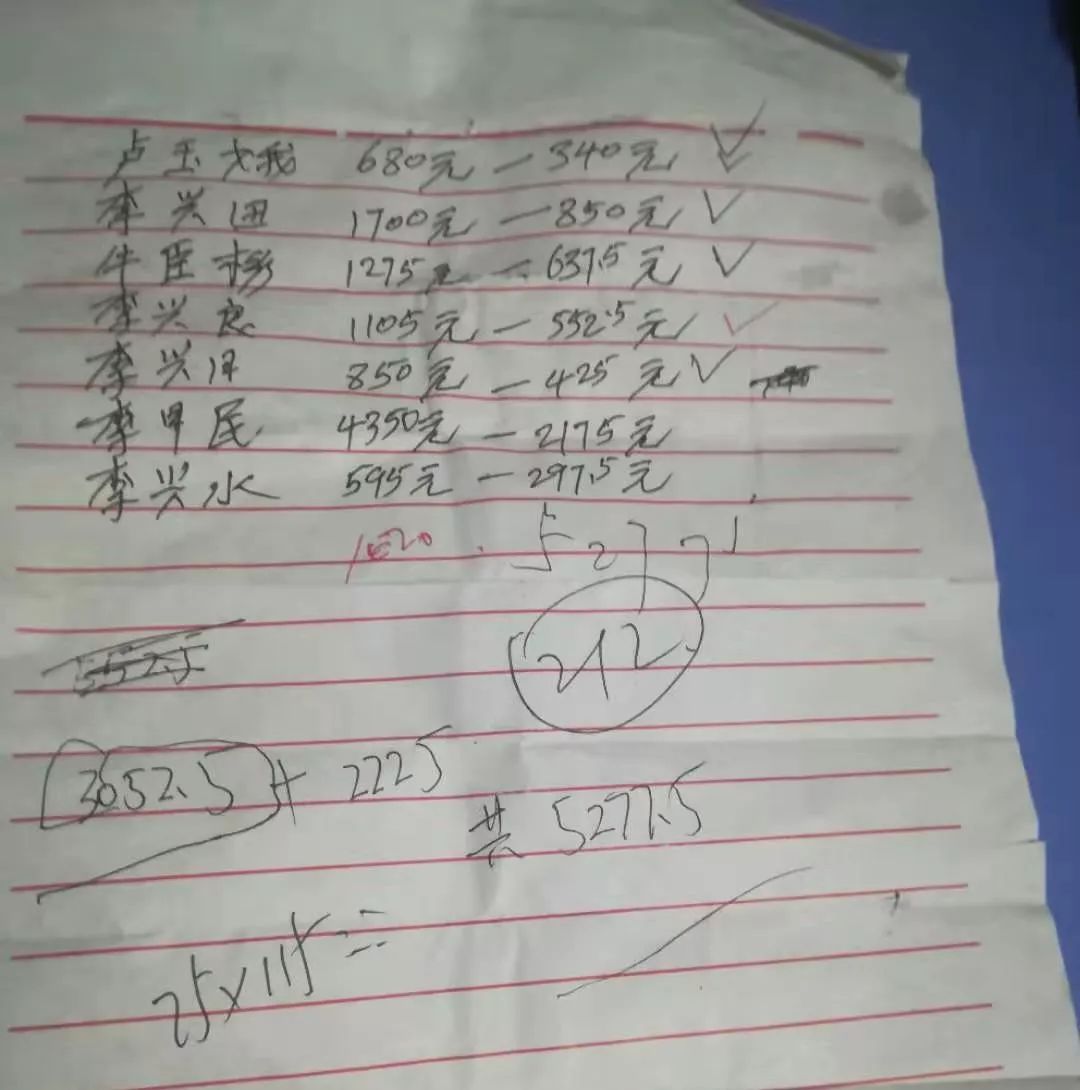 卢玉娥 680元 — 340元 ✓
李兴田 1700元 — 850元 ✓
牛臣彬 1275元 — 637.5元 ✓
李兴良 1105元 — 552.5元 ✓
李兴月 850元 — 425元 ✓
李甲民 4350元 — 2175元
李兴水 595元 — 297.5元
552.5
212
3052.5 + 2225
共 5277.5
25×115=